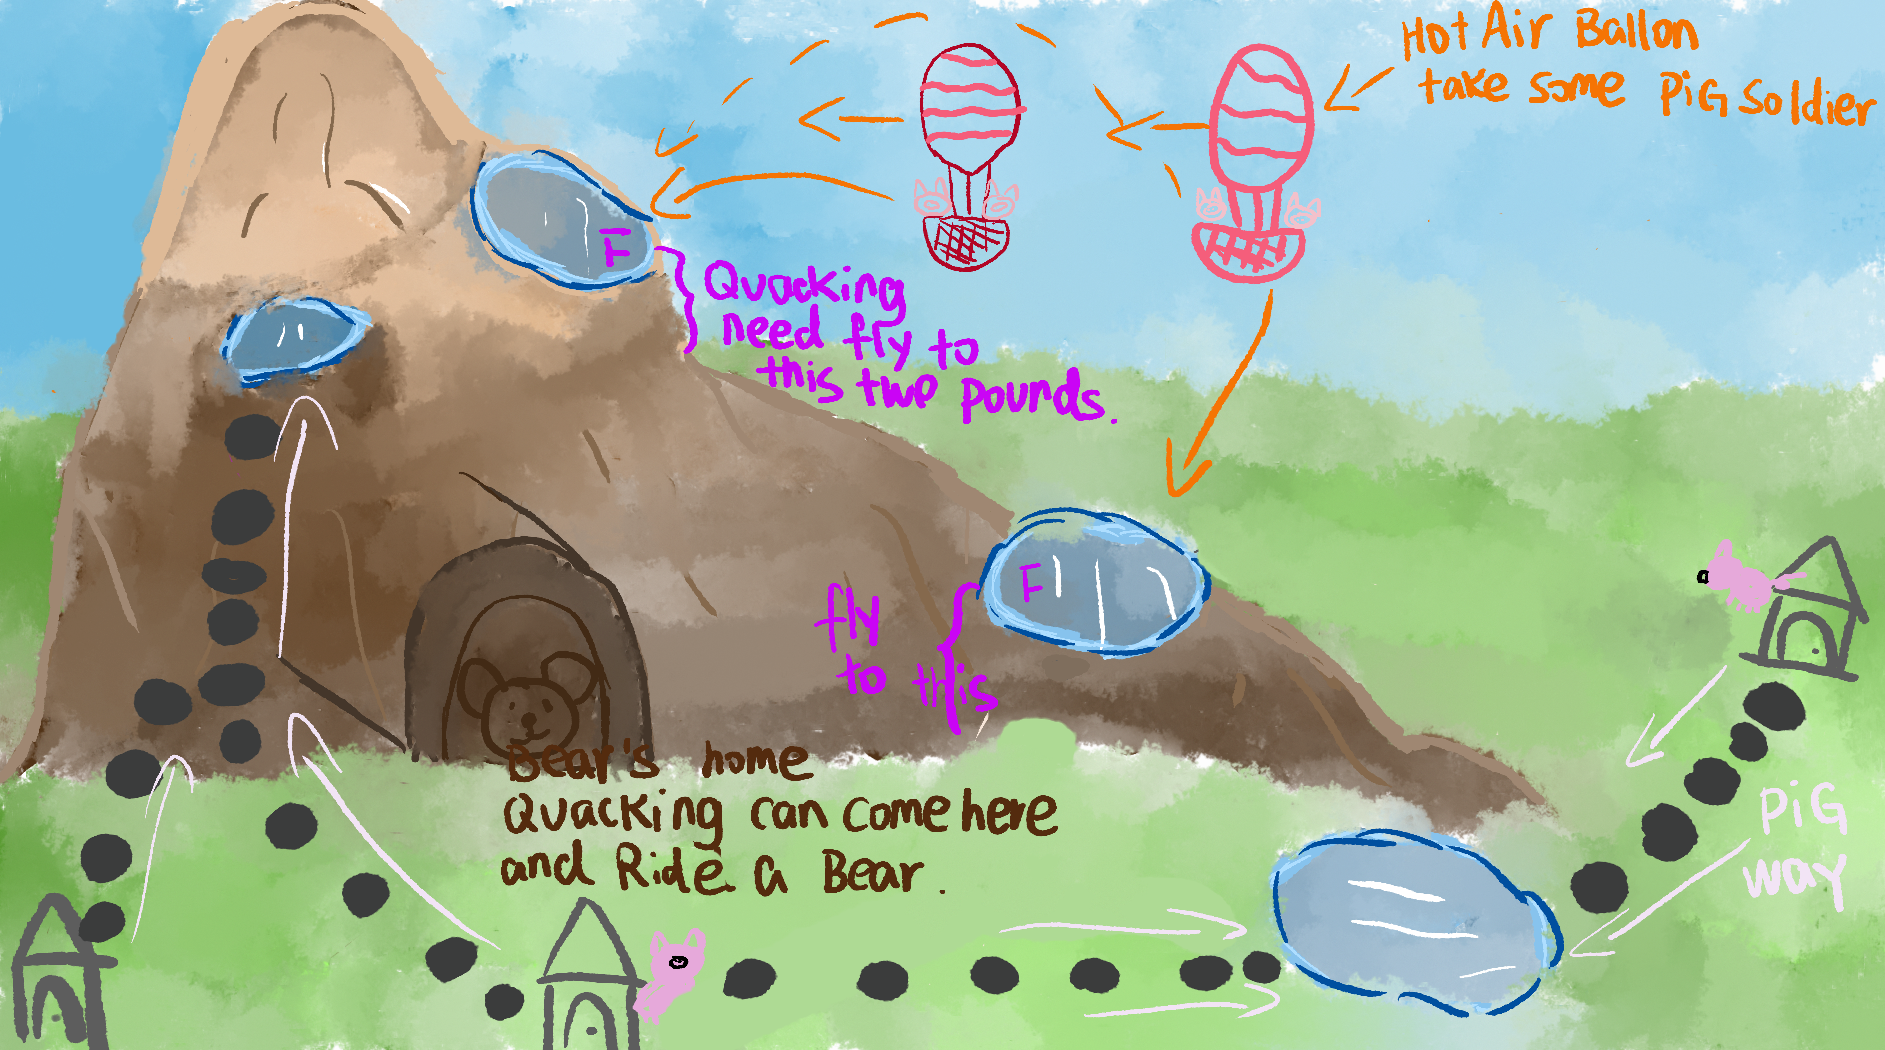 Hot Air Ballon
take some PiG Soldier
F
Quacking
need fly to
this two pounds.
F
fly
to this
PiG
way
Bear's home
Quacking can come here
and Ride a Bear.